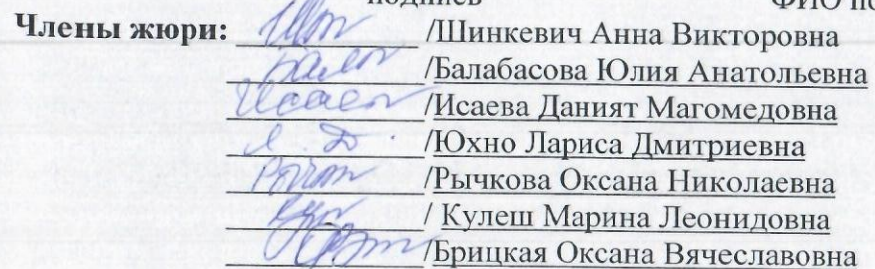 подпись ФИО
Члены жюри: /Шинкевич Анна Викторовна
/Балабасова Юлия Анатольевна
/Исаева Даният Магомедовна
/Юхно Лариса Дмитриевна
/Рычкова Оксана Николаевна
/ Кулеш Марина Леонидовна
/Брицкая Оксана Вячеславовна